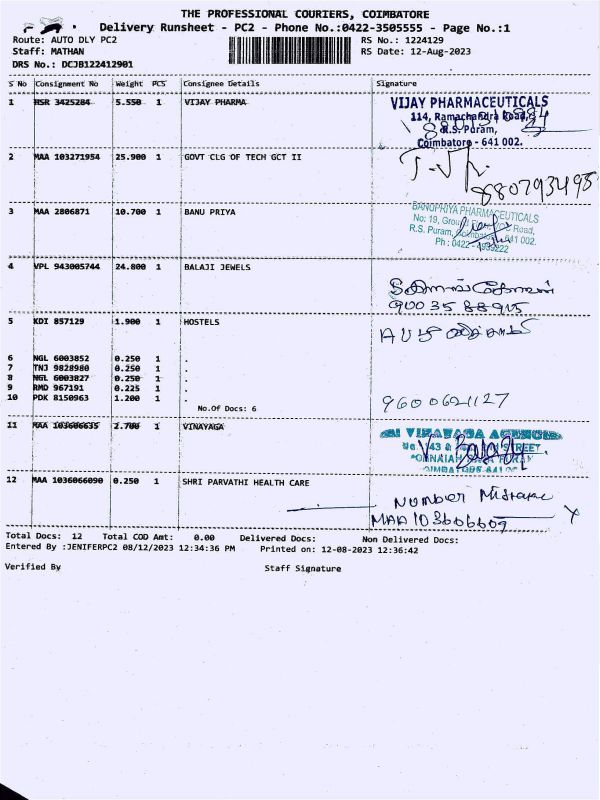 THE PROFESSIONAL COURIERS, COIMBATORE
Delivery Runsheet - PC2 - Phone No.:0422-3505555 - Page No.:1
Route: AUTO DLY PC2 RS No.: 1224129
Staff: MATHAN RS Date: 12-Aug-2023
DRS No.: DCJB122412901
S No Consignment No Weight PCS Consignee Details Signature
1 HSR 3425284 5.550 1 VIJAY PHARMA
VIJAY PHARMACEUTICALS
114, Ramachandra Road,
R.S. Puram,
Coimbatore - 641 002.
2 MAA 103271954 25.900 1 GOVT CLG OF TECH GCT II
8807934985
3 MAA 2806871 10.700 1 BANU PRIYA
BANUPRIYA PHARMACEUTICALS
No: 19, Ground Road,
R.S. Puram, Coimbatore 641 002.
Ph : 0422 - 4399222
4 VPL 943005744 24.800 1 BALAJI JEWELS
90035 88915
5 KDI 857129 1.900 1 HOSTELS
6 NGL 6003852 0.250 1 .
7 TNJ 9828980 0.250 1 .
8 NGL 6003827 0.250 1 .
9 RMD 967191 0.225 1 .
10 PDK 8150963 1.200 1 .
9600621127
No.Of Docs: 6
11 MAA 103606635 2.700 1 VINAYAGA
SRI VINAYAGA AGENCIES
STREET
12 MAA 1036066090 0.250 1 SHRI PARVATHI HEALTH CARE
Number Mistake
MAA 103606609 X
Total Docs: 12 Total COD Amt: 0.00 Delivered Docs: Non Delivered Docs:
Entered By :JENIFERPC2 08/12/2023 12:34:36 PM Printed on: 12-08-2023 12:36:42
Verified By Staff Signature